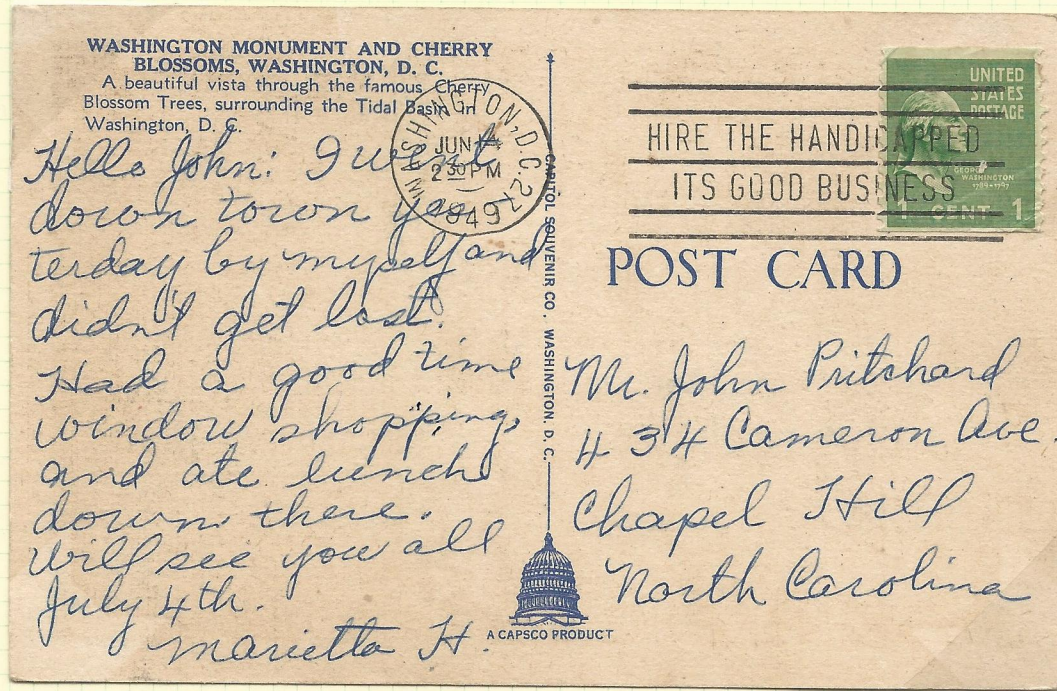 WASHINGTON MONUMENT AND CHERRY
BLOSSOMS, WASHINGTON, D. C.
A beautiful vista through the famous Cherry
Blossom Trees, surrounding the Tidal Basin in
Washington, D. C.
Hello John: I went
down town yes
terday by myself and
didn't get lost.
Had a good time
window shopping,
and ate lunch
down there.
Will see you all
July 4th.
Marietta H.
WASHINGTON, D.C. 27
JUN
2 30 PM
1949
CAPITOL SOUVENIR CO. WASHINGTON, D. C.
A CAPSCO PRODUCT
HIRE THE HANDICAPPED
ITS GOOD BUSINESS
UNITED
STATES
POSTAGE
GEORGE
WASHINGTON
1789-1797
1 CENT 1
POST CARD
Mr. John Pritchard
434 Cameron Ave.
Chapel Hill
North Carolina